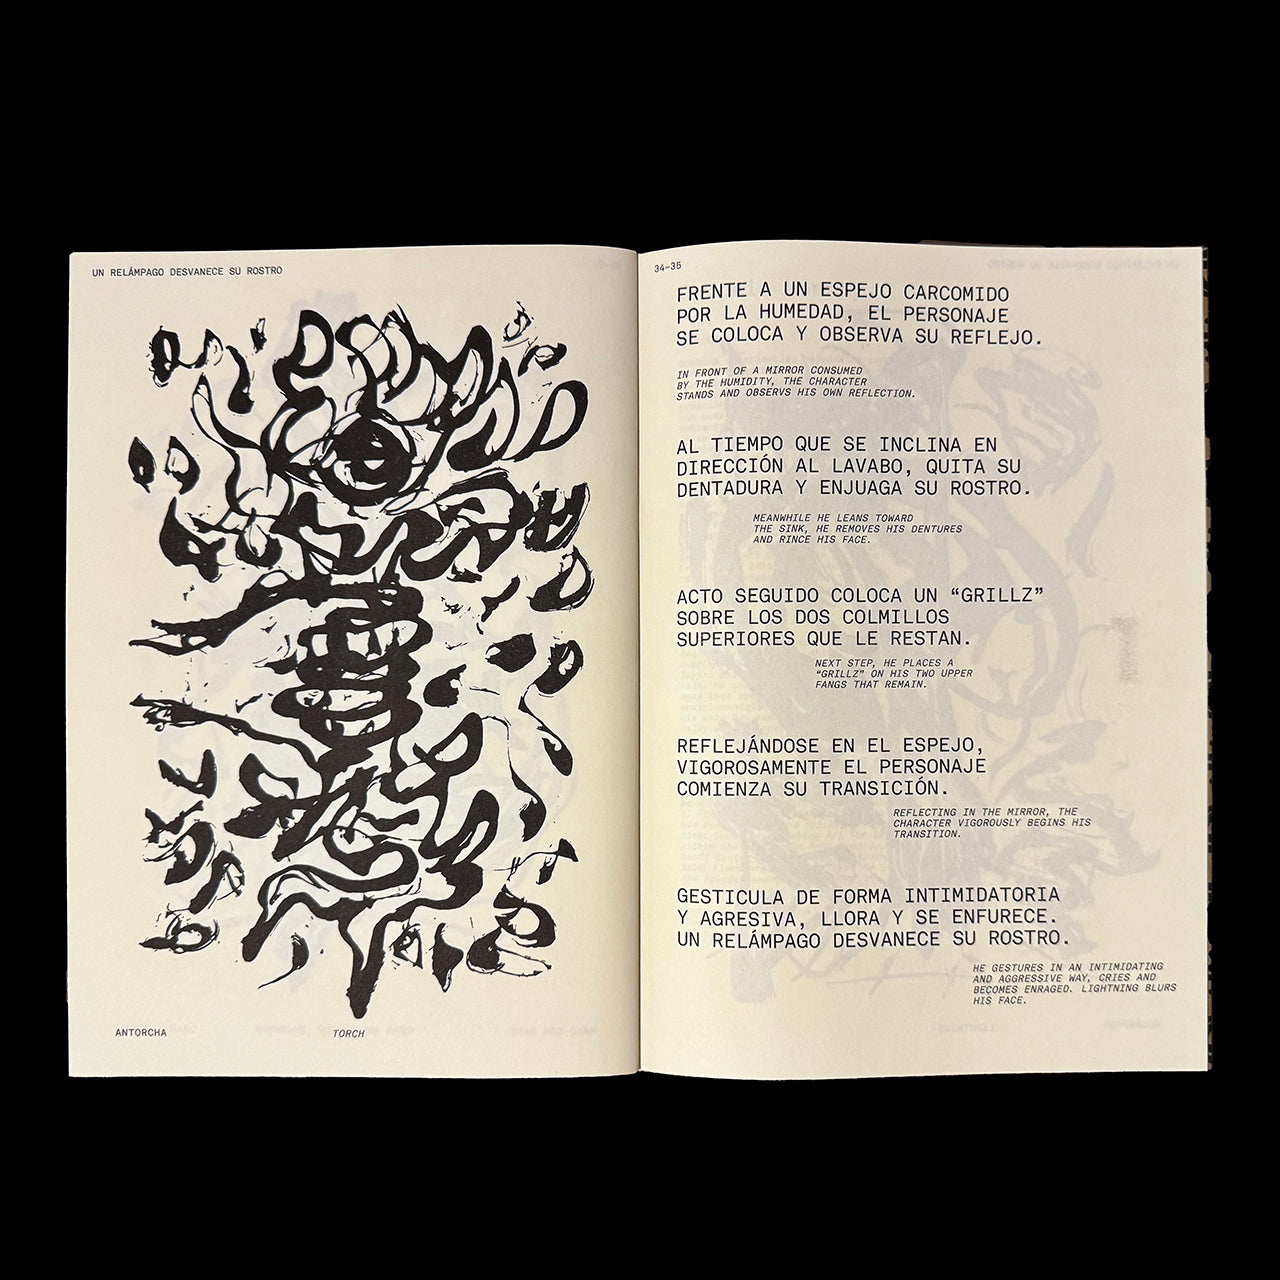 UN RELÁMPAGO DESVANECE SU ROSTRO
ANTORCHA
TORCH
34–35
FRENTE A UN ESPEJO CARCOMIDO
POR LA HUMEDAD, EL PERSONAJE
SE COLOCA Y OBSERVA SU REFLEJO.
IN FRONT OF A MIRROR CONSUMED
BY THE HUMIDITY, THE CHARACTER
STANDS AND OBSERVS HIS OWN REFLECTION.
AL TIEMPO QUE SE INCLINA EN
DIRECCIÓN AL LAVABO, QUITA SU
DENTADURA Y ENJUAGA SU ROSTRO.
MEANWHILE HE LEANS TOWARD
THE SINK, HE REMOVES HIS DENTURES
AND RINCE HIS FACE.
ACTO SEGUIDO COLOCA UN “GRILLZ”
SOBRE LOS DOS COLMILLOS
SUPERIORES QUE LE RESTAN.
NEXT STEP, HE PLACES A
“GRILLZ” ON HIS TWO UPPER
FANGS THAT REMAIN.
REFLEJÁNDOSE EN EL ESPEJO,
VIGOROSAMENTE EL PERSONAJE
COMIENZA SU TRANSICIÓN.
REFLECTING IN THE MIRROR, THE
CHARACTER VIGOROUSLY BEGINS HIS
TRANSITION.
GESTICULA DE FORMA INTIMIDATORIA
Y AGRESIVA, LLORA Y SE ENFURECE.
UN RELÁMPAGO DESVANECE SU ROSTRO.
HE GESTURES IN AN INTIMIDATING
AND AGGRESSIVE WAY, CRIES AND
BECOMES ENRAGED. LIGHTNING BLURS
HIS FACE.